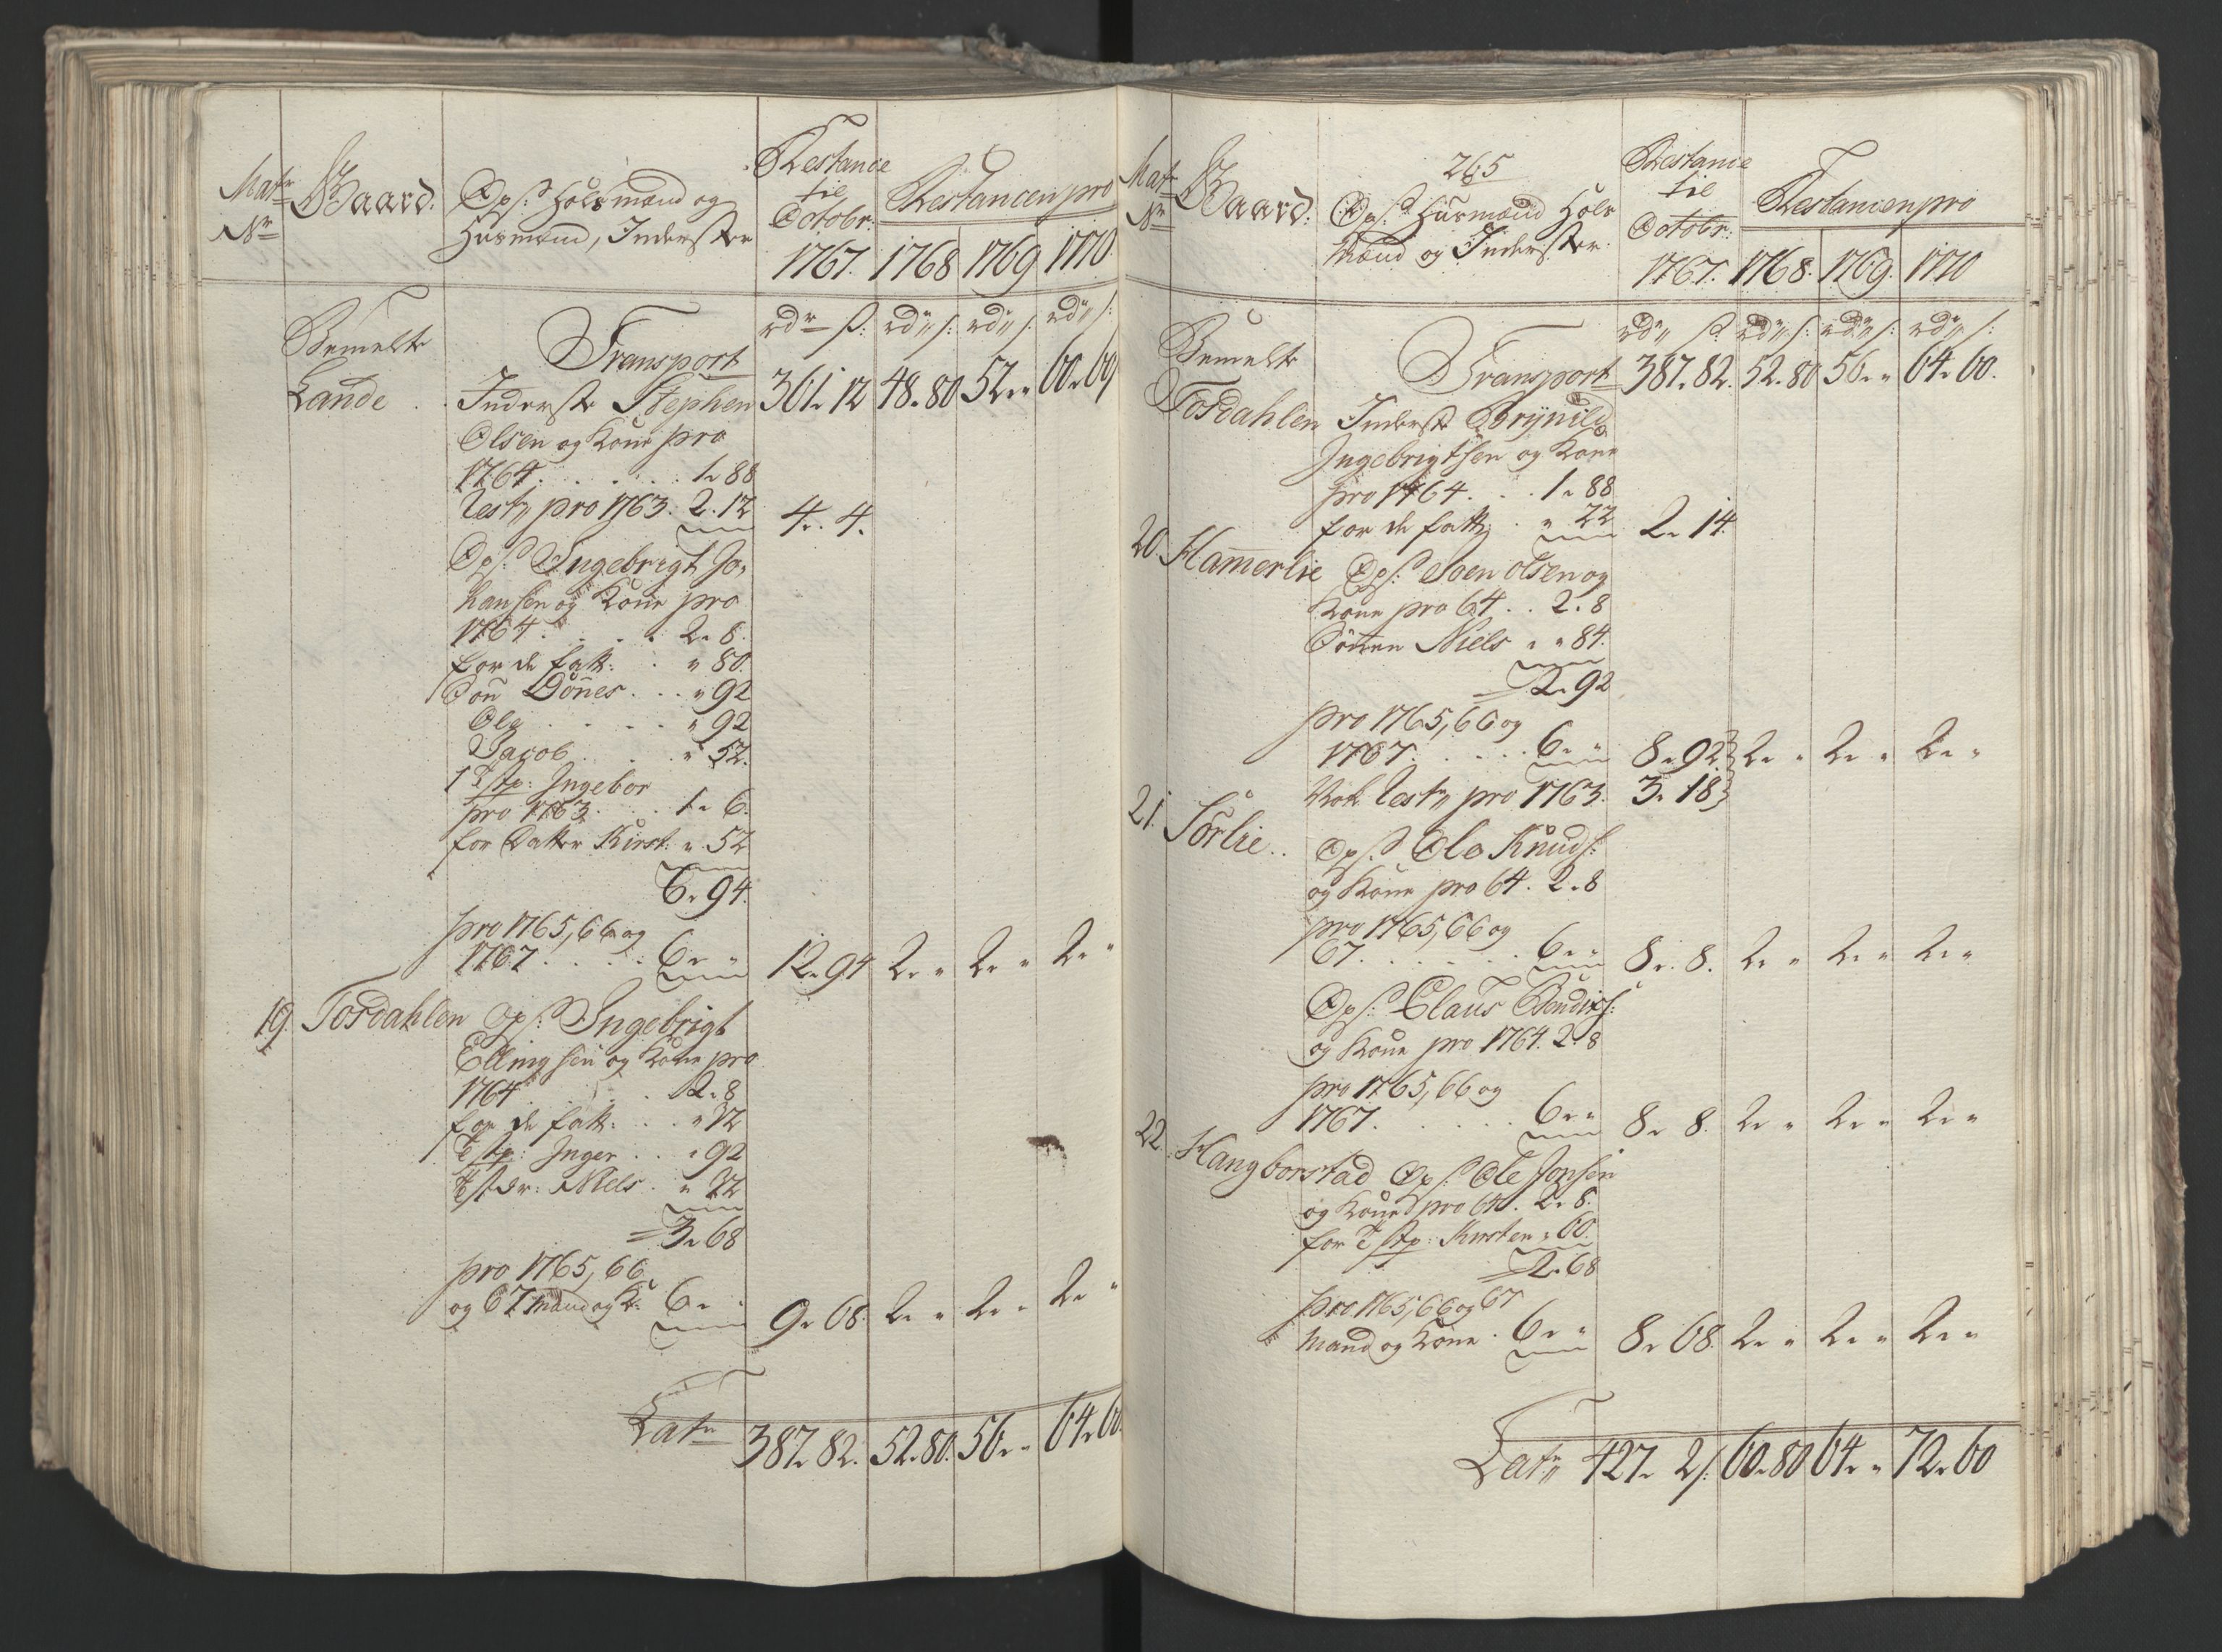 Matr Nr
Gaard.
Ops: Holsmænd og
Husmænd, Inderster
Restance
til
Octobr:
1767.
Restancen pro
1768 1769 1770
rdr s: rd s: rd s: rd s:
Bemelte
Lande
Transport 361 " 12 48 " 80 52 " " 60 " 60
Inderste Stephen
Olsen og Kone pro
1764 . . . . 1 " 88
Rest pro 1763. 2 " 12 4 " 4.
Ops: Ingebrigt Jo-
hansen og Kone pro
1764 . . . . 2 " 8.
for de fatt: . " 80.
1 Søn Dønes . . . " 92
Ole . . . . " 92
Jacob . . . " 52.
1 T: stp: Ingebor
pro 1763 . . . 1 " 6.
for Datter Kirst: " 52
6 " 94.
pro 1765, 66 og
1767 . . . . 6 " " 12 " 94 2 " " 2 " " 2 " "
19. Tosdahlen Ops: Ingebrigt
Ellingsen og Kone pro
1764 . . . . 2 " 8
for de fatt: . . . " 12
1 T: stp: Inger . . " 92
T: st dr: Niels . " 22
3 " 68
pro 1765, 66
og 67 Mand og K: 6 " " 9 " 68. 2 " " 2 " " 2 " "
Latr 387 " 82. 52 " 80. 56 " " 64 " 60.
265
Matr Nr
Gaard:
Ops: Husmænd Hols
Mænd og Inderster.
Restance
til
Octobr:
1767.
Restancen pro
1768. 1769. 1770
rd s: rd s: rd s: rd s:
Bemelte
Tosdahlen
Transport 387 " 82. 52 " 80 56 " " 64 " 60.
Inderst Brynild
Ingebrigtsen og Kone
pro 1764 . . . 1 " 88
for de fatt: . " 22 2 " 14.
20. Hamerlie Ops: Soen Olsen og
Kone pro 64 . . 2 " 8
Sønnen Niels " " 84.
2 " 92
pro 1765, 66 og
1767. . . . . 6 " " 8 " 92 2 " " 2 " " 2 " "
Nok Rest pro 1763. 3 " 18
21. Sørlie . . Ops: Ole Knuds:
og Kone pro 64. 2 " 8
pro 1765, 66 og
67. . . . . . 6 " " 8 " 8. 2 " " 2 " " 2 " "
Ops: Claus Bendixs:
og Kone pro 1764. 2 " 8
pro 1765, 66 og
1767. . . . . . 6 " " 8 " 8. 2 " " 2 " " 2 " "
22. Hangborstad Ops: Ole Jonsen
og Kone pro 64. 2 " 8.
for T: stp: Kirsten " 60.
2 " 68
pro 1765, 66 og 67
Mand og Kone . 6 " " 8 " 68. 2 " " 2 " " 2 " "
Latr 427 " 2 s: 60 " 80 64 " " 72 " 60